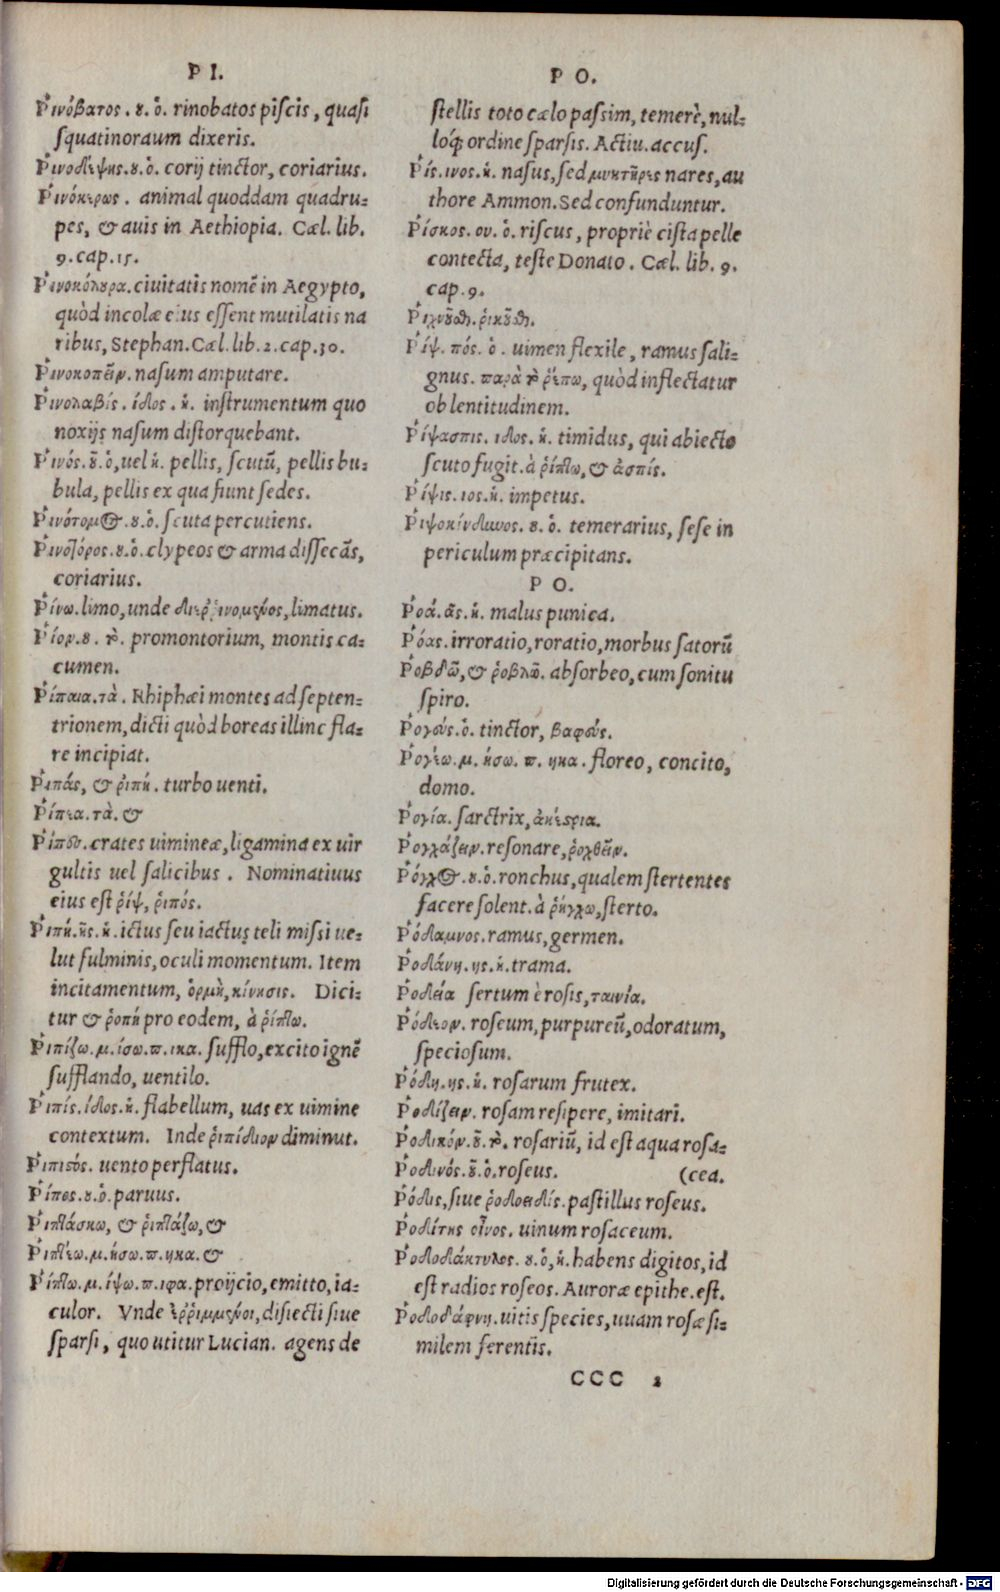 Ρ Ι.
Ῥινόβατος. ȣ. ὁ. rinobatos piscis, quasi
squatinoraum dixeris.
Ῥινοδέψης. ȣ. ὁ. corij tinctor, coriarius.
Ῥινόκερως. animal quoddam quadru=
pes, & auis in Aethiopia. Cæl. lib.
9. cap. 15.
Ῥινοκόλȣρα. ciuitatis nomẽ in Aegypto,
quòd incolæ eius essent mutilatis na
ribus, Stephan. Cæl. lib. 2. cap. 30.
Ῥινοκοπεῖν. nasum amputare.
Ῥινολαβίς. ίδος. ἡ. instrumentum quo
noxijs nasum distorquebant.
Ῥινός. ȣ͂. ὁ, uel ἡ. pellis, scutũ, pellis bu=
bula, pellis ex qua fiunt sedes.
Ῥινότομος. ȣ. ὁ. scuta percutiens.
Ῥινοτόρος. ȣ. ὁ. clypeos & arma dissecãs,
coriarius.
Ῥίνω. limo, unde διεῤῥινομένος, limatus.
Ῥίον. ȣ. τὸ. promontorium, montis ca=
cumen.
Ῥίπαια. τὰ. Rhiphæi montes ad septen=
trionem, dicti quòd boreas illinc fla=
re incipiat.
Ῥιπάς, & ῥιπή. turbo uenti.
Ῥίπεα. τὰ. &
Ῥίπου. crates uimineæ, ligamina ex uir
gultis uel salicibus. Nominatiuus
eius est ῥίψ, ῥιπός.
Ῥιπή. ῆς. ἡ. ictus seu iactus teli missi ue=
lut fulminis, oculi momentum. Item
incitamentum, ὁρμὴ, κίνησις. Dici=
tur & ῥοπή pro eodem, à ῥίπτω.
Ῥιπίζω. μ. ίσω. π. ικα. sufflo, excito ignẽ
sufflando, uentilo.
Ῥιπίς. ίδος. ἡ. flabellum, uas ex uimine
contextum. Inde ῥιπίδιον diminut.
Ῥιπιστός. uento perflatus.
Ῥίπος. ȣ. ὁ. paruus.
Ῥιπτάσκω, & ῥιπτάζω, &
Ῥιπτέω. μ. ήσω. π. ηκα. &
Ῥίπτω. μ. ίψω. π. ιφα. proijcio, emitto, ia=
culor. Vnde ἐῤῥιμμένοι, disiecti siue
sparsi, quo utitur Lucian. agens de
Ρ Ο.
stellis toto cælo passim, temerè, nul=
loq́ ordine sparsis. Actiu. accus.
Ῥίς. ινος. ἡ. nasus, sed μυκτῆρες nares, au
thore Ammon. Sed confunduntur.
Ῥίσκος. ου. ὁ. riscus, propriè cista pelle
contecta, teste Donato. Cæl. lib. 9.
cap. 9.
Ῥιχνȣ͂ϑη. ῥικȣ͂ϑη.
Ῥίψ. πός. ὁ. uimen flexile, ramus sali=
gnus. παρὰ τὸ ῥέπω, quòd inflectatur
ob lentitudinem.
Ῥίψασπις. ιδος. ἡ. timidus, qui abiecto
scuto fugit. à ῥίπτω, & ἀσπίς.
Ῥίψις. ιος. ἡ. impetus.
Ῥιψοκίνδυνος. ȣ. ὁ. temerarius, sese in
periculum præcipitans.
Ρ Ο.
Ῥοά. ᾶς. ἡ. malus punica.
Ῥόας. irroratio, roratio, morbus satorũ
Ῥοβδῶ, & ῥοβλῶ. absorbeo, cum sonitu
spiro.
Ῥογούς. ὁ. tinctor, βαφούς.
Ῥογέω. μ. ήσω. π. ηκα. floreo, concito,
domo.
Ῥογία. sarctrix, ἀκέστρια.
Ῥογχάζειν. resonare, ῥοχθεῖν.
Ῥόγχος. ȣ. ὁ. ronchus, qualem stertentes
facere solent. à ῥήγχω, sterto.
Ῥόδαμνος. ramus, germen.
Ῥοδάνη. ης. ἡ. trama.
Ῥοδεία sertum è rosis, ταινία.
Ῥόδεον. roseum, purpureũ, odoratum,
speciosum.
Ῥόδη. ης. ἡ. rosarum frutex.
Ῥοδίζειν. rosam resipere, imitari.
Ῥοδικόν. ȣ͂. τὸ. rosariũ, id est aqua rosa=
Ῥοδινός. ȣ͂. ὁ. roseus. (cea.
Ῥόδις, siue ῥοδοειδίς. pastillus roseus.
Ῥοδίτης οἶνος. uinum rosaceum.
Ῥοδοδάκτυλος. ȣ. ὁ, ἡ. habens digitos, id
est radios roseos. Auroræ epithe. est.
Ῥοδοδάφνη. uitis species, uuam rosæ si=
milem ferentis.
CCC 2
Digitalisierung gefördert durch die Deutsche Forschungsgemeinschaft - DFG